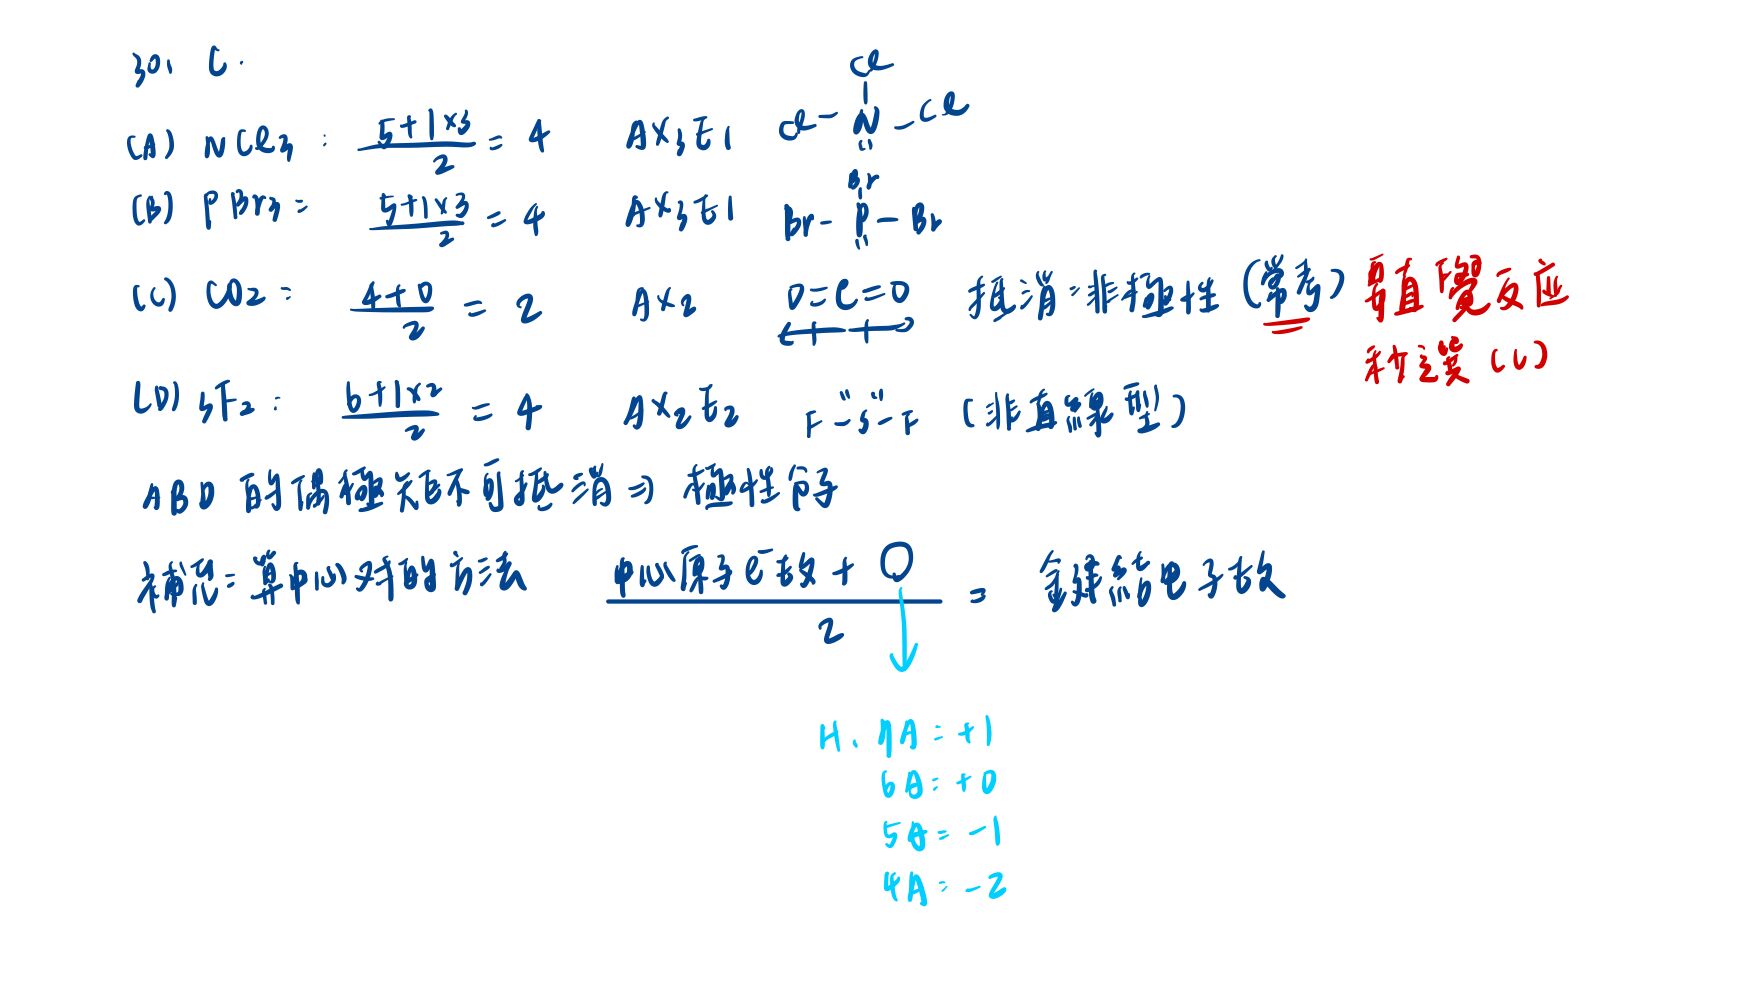 30. C.
(A) NCl3 : (5+1×3)/2 = 4 AX3E1 Cl Cl-N-Cl
(B) PBr3 : (5+1×3)/2 = 4 AX3E1 Br Br-P-Br
(C) CO2 : (4+0)/2 = 2 AX2 O=C=O 抵消:非極性 (常考) 要直覺反应
秒選 (C)
(D) SF2 : (6+1×2)/2 = 4 AX2E2 F-S-F (非直線型)
ABD 的偶極矩不可抵消 ⇒ 極性分子
補充: 算中心对的方法 (中心原子e⁻数 + O)/2 = 鍵結电子数
H. 7A = +1
6A = +0
5A = -1
4A = -2